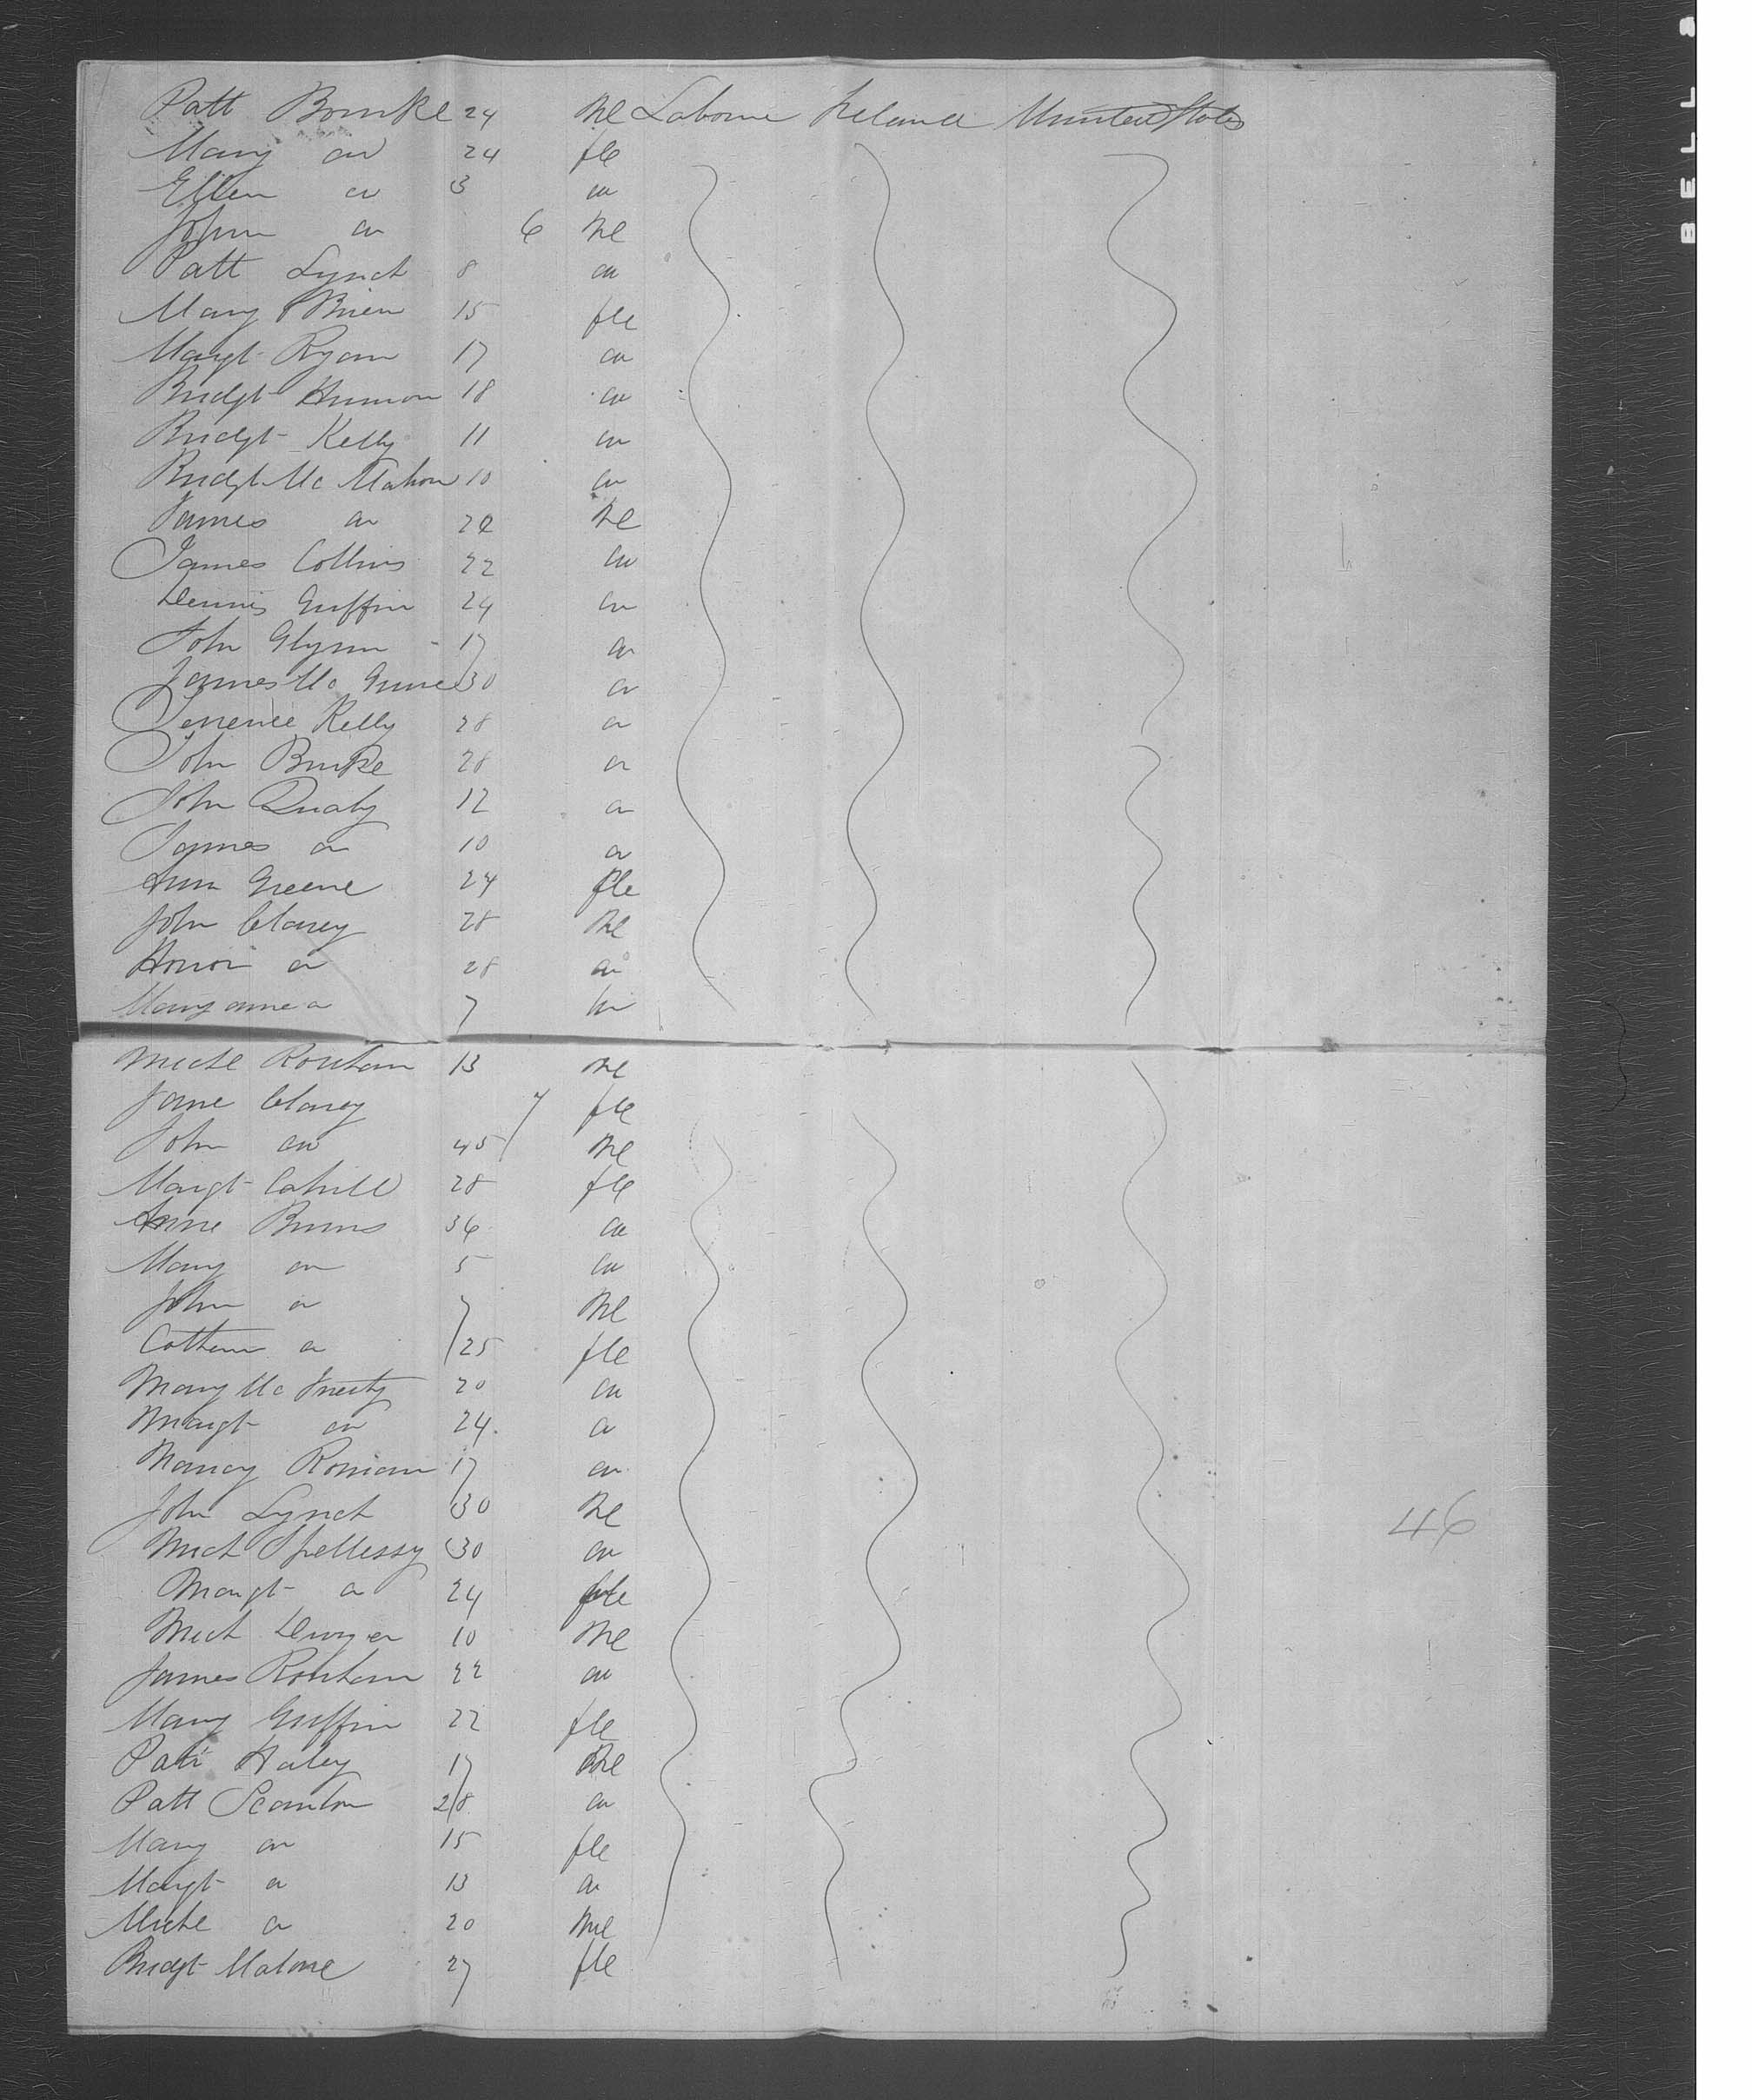 Patt Bourke 24 Me Laborer Ireland United States
Mary do 24 fle
Ellen do 3 do
John do 6 Me
Patt Lynch 8 do
Mary OBrien 15 fle
Margt Ryan 17 do
Bridgt Hannon 18 do
Bridgt Kelly 11 do
Bridgt Mc Mahon 10 do
James do 22 Me
James Collins 22 do
Dennis Griffin 24 do
John Glynn 17 do
James Mc 30 do
Terrence Kelly 28 do
John Burke 28 do
John Qualy 12 do
James do 10 do
Ann Greene 24 fle
John Clancy 28 Me
Honor do 28 do
Mary anne do 7 do
Michl 13 Me
Jane Clancy 7 fle
John do 45 Me
Margt Cahill 28 fle
Anne Burns 36 do
Mary do 5 do
John do 7 Me
Cathern do 25 fle
Mary Mc 20 do
Margt do 24 do
Nancy Ronian 17 do
John Lynch 30 Me
Mich Spellessy 30 do
Margt do 24 fle
Mich Dwyer 10 Me
James 22 do
Mary Griffin 22 fle
Patt Haley 17 Me
Patt Scanlon 28 do
Mary do 15 fle
Margt do 13 do
Michl do 20 Me
Bridgt Malone 27 fle
46
BELL &